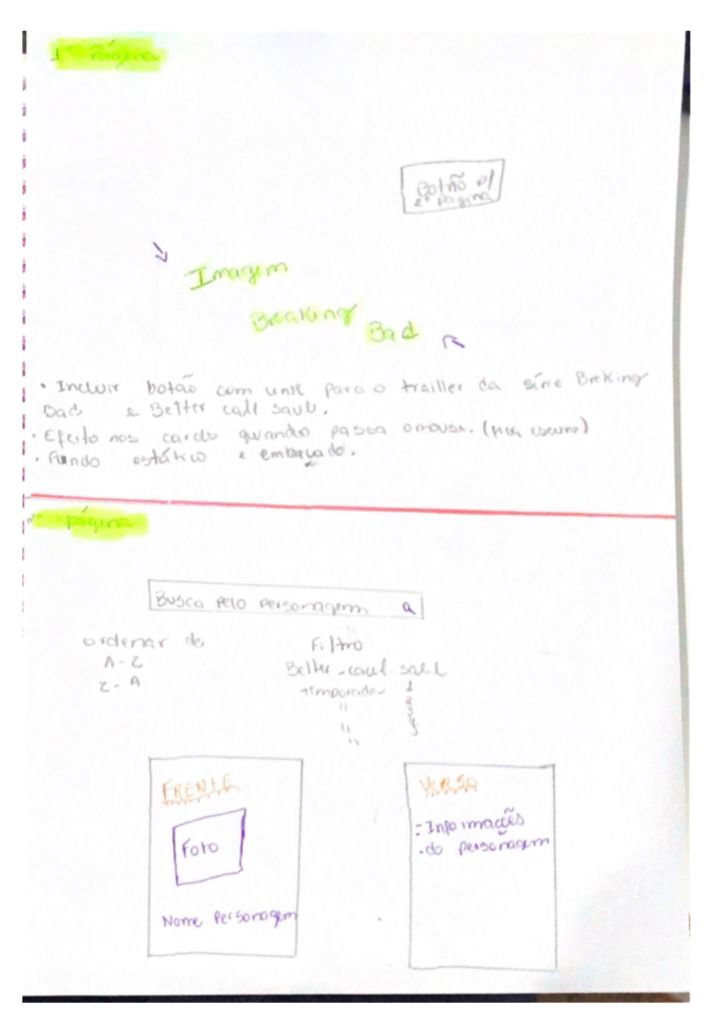 1ª Página
Botão p/
2ª Página
Imagem
Breaking
Bad
• Incluir botão com link para o trailler da síne Breking
Bad e Better call saul.
• Efeito nos cards quando passa o mouse. (
• Fundo estático e embaçado.
2ª página
Busca pelo personagem
ordenar de
A-Z
Z-A
Filtro
Better-caul saul
temporadas 1
"
"
"
FRENTE
Foto
Nome Personagem
VERSO
= Informações
do personagem